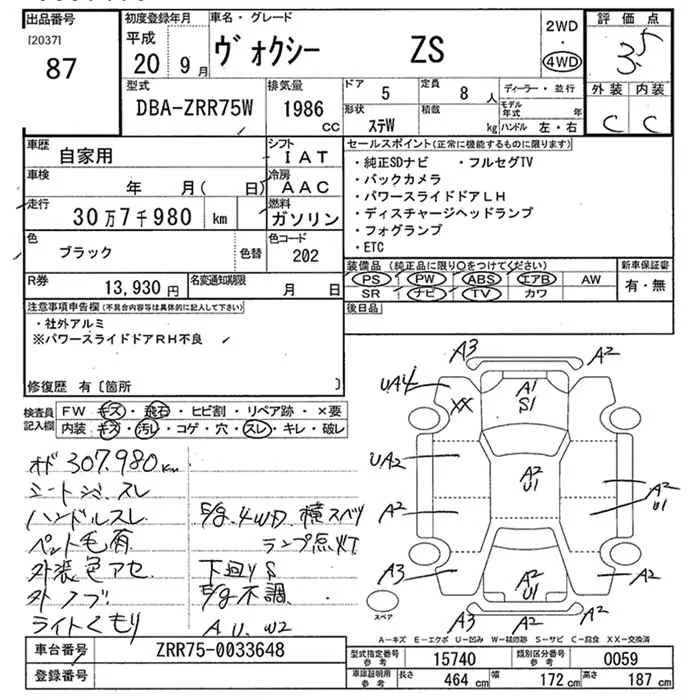 出品番号
[2037]
87
初度登録年月
平成
20 9 月
車名・グレード
ヴォクシー ZS
2WD
・
4WD
評価点
3.5
外装 内装
C C
型式
DBA-ZRR75W
排気量
1986
CC
ドア
5
定員
8 人
形状
ステW
積載
kg
ディーラー・並行
モデル年式 年
ハンドル 左・右
車歴
自家用
シフト
IAT
車検
年 月( 日)
冷房
AAC
走行
30万7千980 km
燃料
ガソリン
色
ブラック
色替
色コード
202
R券
13,930 円
名変通知期限
月 日
セールスポイント(正常に機能するものに限ります)
・純正SDナビ ・フルセグTV
・バックカメラ
・パワースライドドアLH
・ディスチャージヘッドランプ
・フォグランプ
・ETC
装備品 (純正品に限り〇をつけてください)
PS PW ABS エアB AW
SR ナビ TV カワ
新車保証書
有・無
後日品
注意事項申告欄(不具合内容等は具体的に記入して下さい)
・社外アルミ
※パワースライドドアRH不良
修復歴 有〔箇所 〕
検査員記入欄
FW キズ・飛石・ヒビ割・リペア跡・×要
内装 キズ・汚レ・コゲ・穴・スレ・キレ・破レ
307.980km
スレ
ハンドルスレ
ペット毛有
外装色アセ
ライトくもり
E/g.4WD.横スベリ
ランプ点灯
下回りS
E/g不調
A U. W2
A3
A2
UA4
XX
A1
S1
UA2
A2
U1
A2
U1
A2
A3
A2
U1
A2
A3
A2
スペア
A-キズ E-エクボ U-凹み W-補修跡 S-サビ C-腐食 XX-交換済
車台番号
ZRR75-0033648
登録番号
型式指定番号
参考
15740
類別区分番号
参考
0059
車庫証明用
参考
長さ 464 cm 幅 172 cm 高さ 187 cm